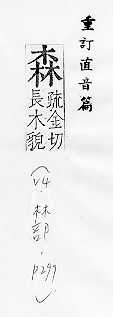 重訂直音篇
森
疏金切
長木貌
(V4.林部.p297)